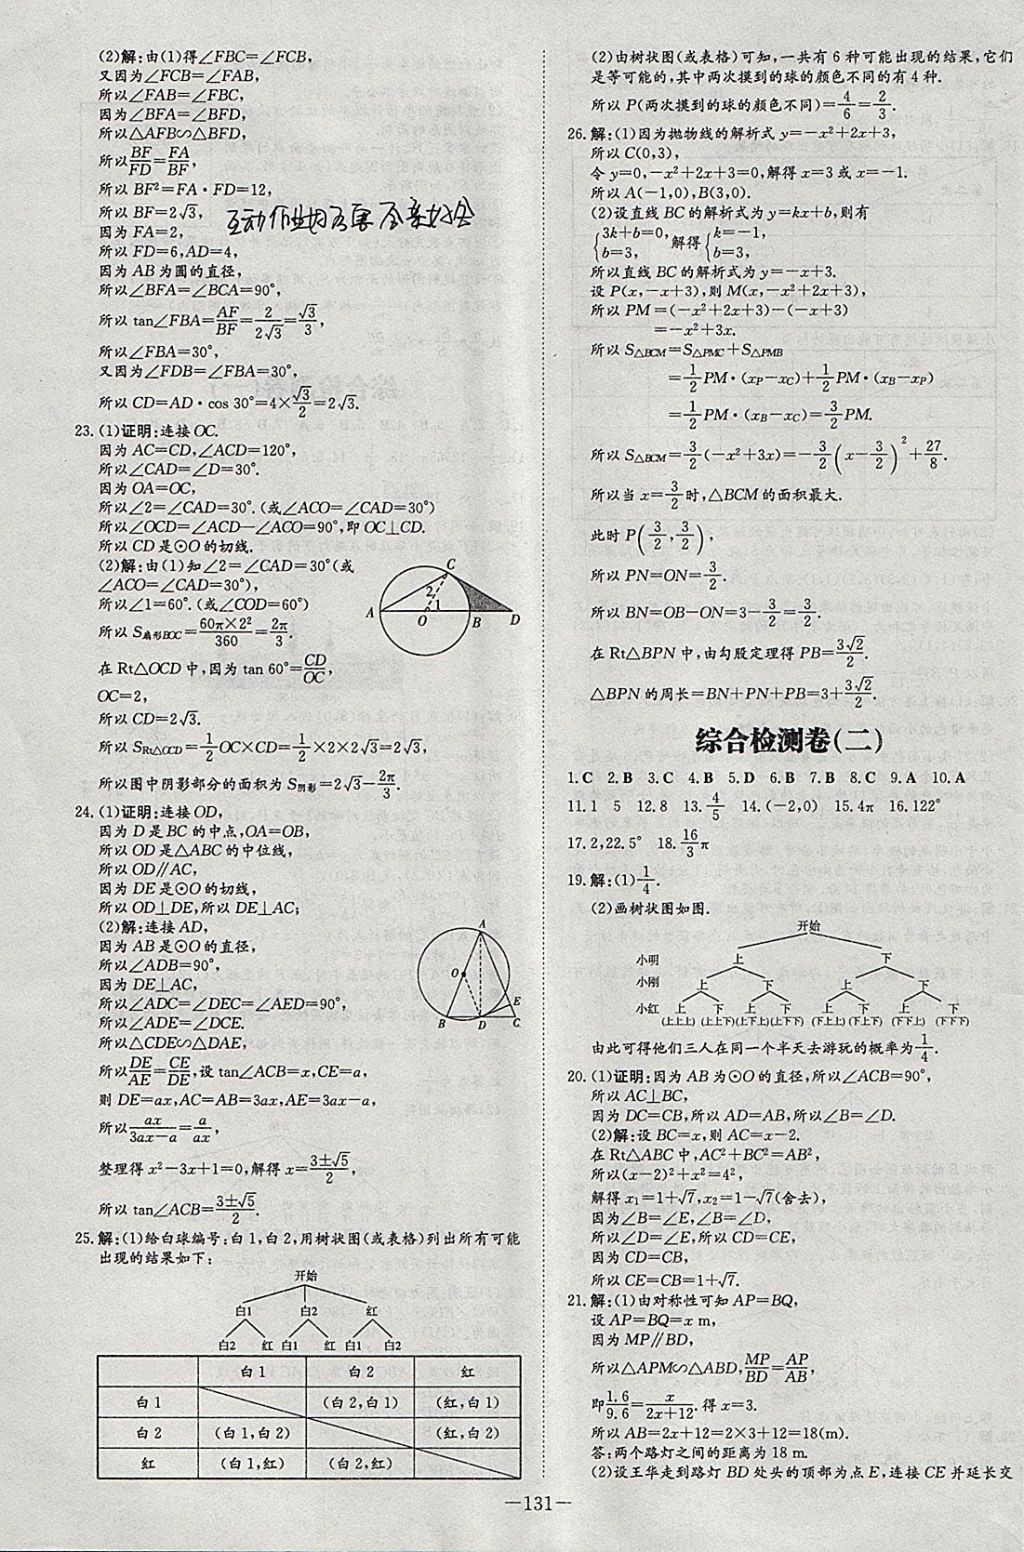 (2)解:由(1)得∠FBC=∠FCB,
又因为∠FCB=∠FAB,
所以∠FAB=∠FBC,
因为∠BFA=∠BFD,
所以△AFB∽△BFD,
所以BF/FD=FA/BF,
所以 BF²=FA·FD=12,
所以 BF=2√3,
因为 FA=2,
所以 FD=6,AD=4,
因为 AB 为圆的直径,
所以∠BFA=∠BCA=90°,
所以 tan∠FBA=AF/BF=2/2√3=√3/3,
所以∠FBA=30°,
又因为∠FDB=∠FBA=30°,
所以 CD=AD·cos 30°=4×√3/2=2√3.
23.(1)证明:连接OC.
因为 AC=CD,∠ACD=120°,
所以∠CAD=∠D=30°.
因为 OA=OC,
所以∠2=∠CAD=30°.(或∠ACO=∠CAD=30°)
所以∠OCD=∠ACD—∠ACO=90°,即 OC⊥CD.
所以 CD 是⊙O的切线.
(2)解:由(1)知∠2=∠CAD=30°(或
∠ACO=∠CAD=30°),
所以∠1=60°.(或∠COD=60°)
所以 S扇形BOC=60π×2²/360=2π/3.
在 Rt△OCD 中,因为 tan 60°=CD/OC,
OC=2,
所以 CD=2√3.
所以 SRt△OCD=1/2 OC×CD=1/2×2×2√3=2√3,
所以图中阴影部分的面积为 S阴影=2√3-2π/3.
C
2
1
A O B D
24.(1)证明:连接OD,
因为 D 是 BC 的中点,OA=OB,
所以 OD 是△ABC 的中位线,
所以 OD∥AC,
因为 DE 是⊙O 的切线,
所以 OD⊥DE,所以 DE⊥AC;
(2)解:连接 AD,
因为 AB 是⊙O 的直径,
所以∠ADB=90°,
因为 DE⊥AC,
所以∠ADC=∠DEC=∠AED=90°,
所以∠ADE=∠DCE.
所以△CDE∽△DAE,
所以DE/AE=CE/DE,设 tan∠ACB=x,CE=a,
则 DE=ax,AC=AB=3ax,AE=3ax-a,
所以ax/3ax-a=a/ax,
整理得 x²-3x+1=0,解得 x=3±√5/2,
所以 tan∠ACB=3±√5/2.
A
O
E
B D C
25.解:(1)给白球编号:白1,白2,用树状图(或表格)列出所有可能
出现的结果如下:
开始
白1 白2 红
白2 红 白1 红 白1 白2
白1 白2 红
白1 (白2,白1) (红,白1)
白2 (白1,白2) (红,白2)
红 (白1,红) (白2,红)
(2)由树状图(或表格)可知,一共有 6 种可能出现的结果,它们
是等可能的,其中两次摸到的球的颜色不同的有 4 种.
所以 P(两次摸到的球的颜色不同)=4/6=2/3.
26.解:(1)因为抛物线的解析式 y=-x²+2x+3,
所以 C(0,3),
令 y=0,-x²+2x+3=0,解得 x=3 或 x=-1.
所以 A(-1,0),B(3,0).
(2)设直线 BC 的解析式为 y=kx+b,则有
{3k+b=0, 解得{k=-1,
b=3, b=3,
所以直线 BC 的解析式为 y=-x+3.
设 P(x,-x+3),则 M(x,-x²+2x+3),
所以 PM=(-x²+2x+3)-(-x+3)
=-x²+3x.
所以 S△BCM=S△PMC+S△PMB
=1/2 PM·(xP-xC)+1/2 PM·(xB-xP)
=1/2 PM·(xB-xC)=3/2 PM.
所以 S△BCM=3/2(-x²+3x)=-3/2(x-3/2)²+27/8.
所以当 x=3/2时,△BCM 的面积最大.
此时 P(3/2,3/2),
所以 PN=ON=3/2.
所以 BN=OB-ON=3-3/2=3/2.
在 Rt△BPN 中,由勾股定理得 PB=3√2/2.
△BPN 的周长=BN+PN+PB=3+3√2/2.
综合检测卷(二)
1.C 2.B 3.C 4.B 5.D 6.B 7.B 8.C 9.A 10.A
11.1 5 12.8 13.4/5 14.(-2,0) 15.4π 16.122°
17.2,22.5° 18.16/3π
19.解:(1)1/4.
(2)画树状图如图.
开始
小明 上 下
小刚 上 下 上 下
小红 上 下 上 下 上 下 上 下
(上上上) (上上下)(上下上)(上下下) (下上上) (下上下) (下下上) (下下下)
由此可得他们三人在同一个半天去游玩的概率为1/4.
20.(1)证明:因为 AB 为⊙O 的直径,所以∠ACB=90°,
所以 AC⊥BC,
因为 DC=CB,所以 AD=AB,所以∠B=∠D.
(2)解:设 BC=x,则 AC=x-2.
在 Rt△ABC 中,AC²+BC²=AB²,
所以(x-2)²+x²=4²,
解得 x₁=1+√7,x₂=1-√7(舍去),
因为∠B=∠E,∠B=∠D,
所以∠D=∠E,所以 CD=CE,
因为 CD=CB,
所以 CE=CB=1+√7.
21.解:(1)由对称性可知 AP=BQ,
设 AP=BQ=x m,
因为 MP∥BD,
所以△APM∽△ABD,MP/BD=AP/AB,
即1.6/9.6=x/2x+12.得 x=3.
所以 AB=2x+12=2×3+12=18(m).
答:两个路灯之间的距离为 18 m.
(2)设王华走到路灯 BD 处头的顶部为点 E,连接 CE 并延长交
—131—